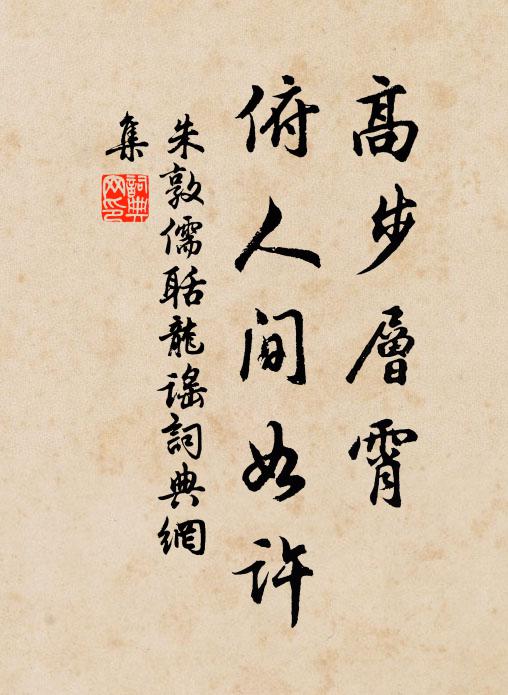 高步層霄
俯人間如許
朱敦儒聒龍謠詞典網
集
詞典
网印